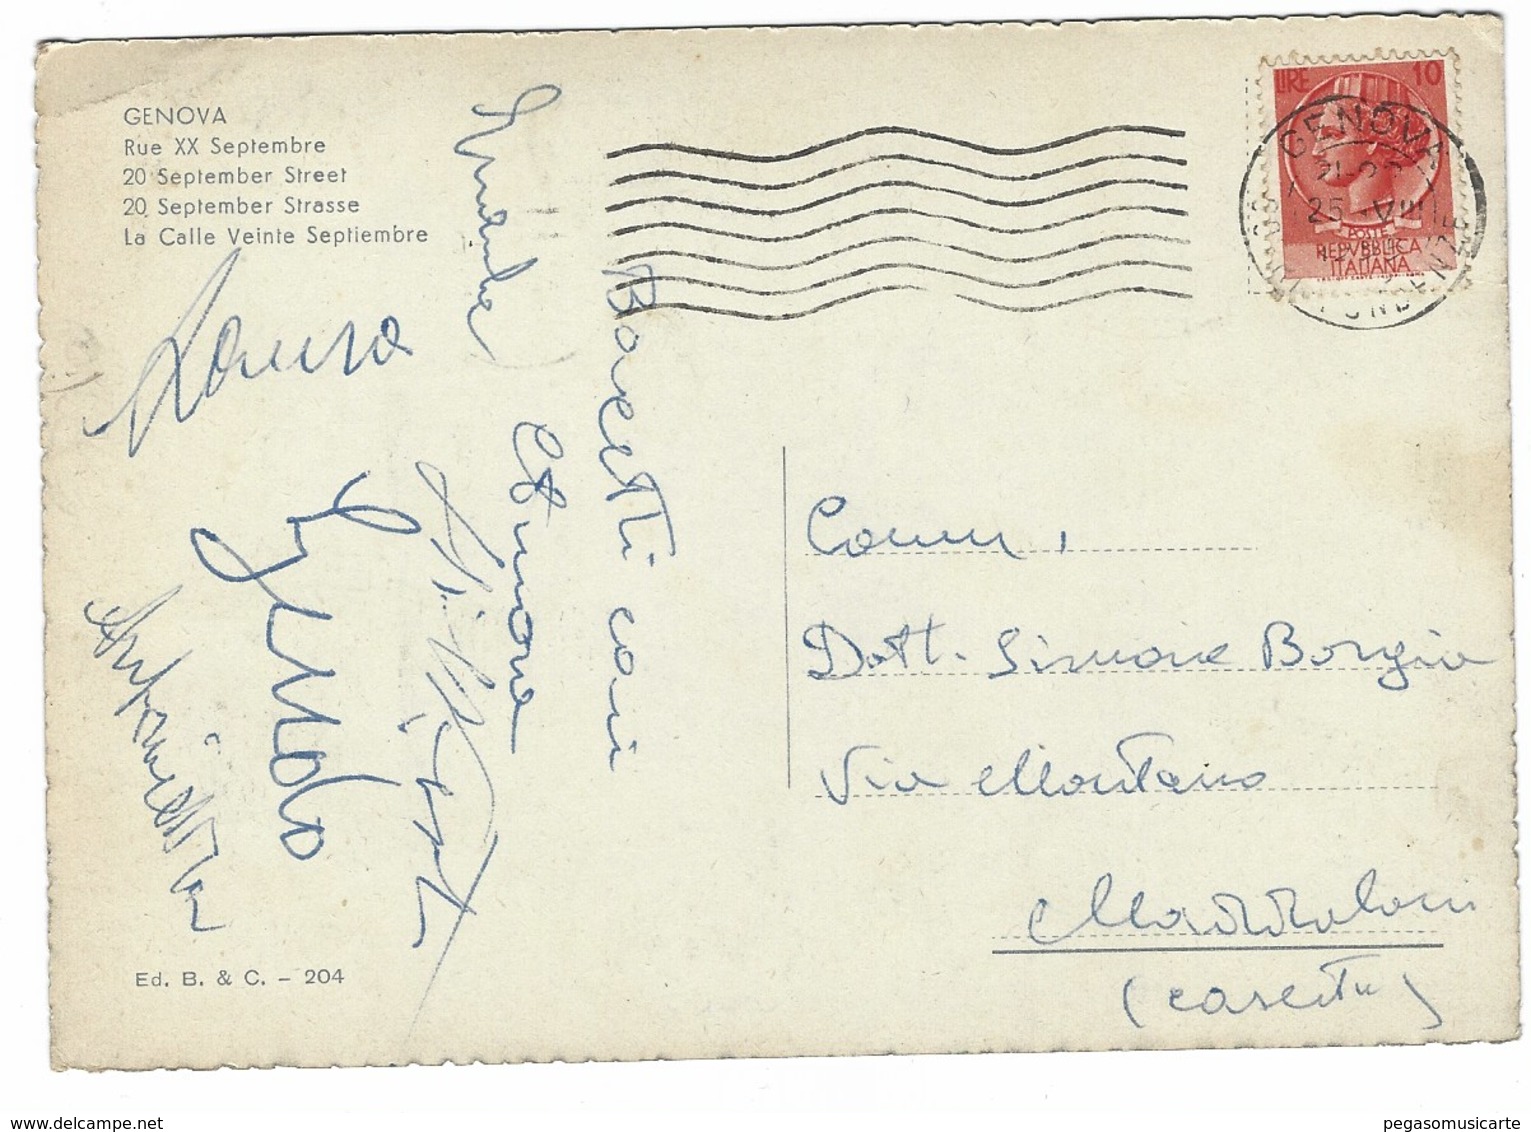 GENOVA
Rue XX Septembre
20 September Street
20 September Strasse
La Calle Veinte Septiembre
LIRE 10
GENOVA
21-22
25 VIII
POSTE
REPVBBLICA
ITALIANA
Bacetti cari
Simona
Laura
Antonietta
Comm.
Dott. Simone Borgia
Via Montano
Maddaloni
(Caserta)
Ed. B. & C. - 204
pegasomusicarte
www.delcampe.net